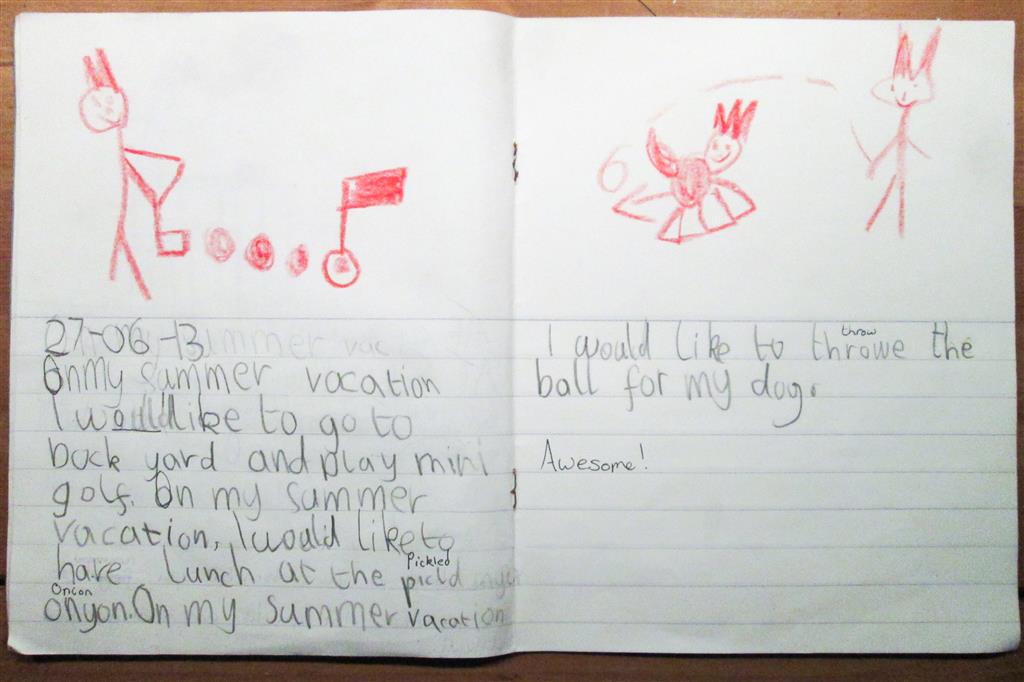 27-06-13
On my summer vacation
I would like to go to
back yard and play mini
golf. On my summer
vacation, I would like to
Pickled
have lunch at the pickd
Onion
Onyon. On my summer vacation
throw
I would like to throwe the
ball for my dog.
Awesome!